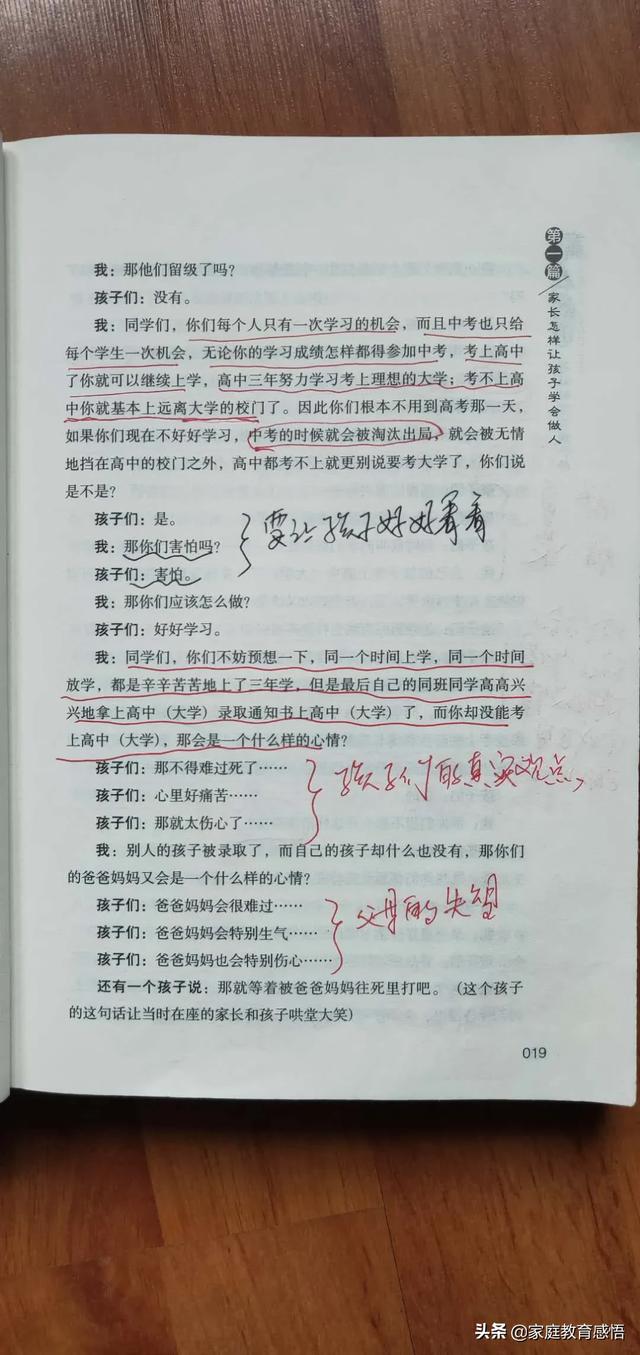 第一篇 家长怎样让孩子学会做人
我：那他们留级了吗？
孩子们：没有。
我：同学们，你们每个人只有一次学习的机会，而且中考也只给
每个学生一次机会，无论你的学习成绩怎样都得参加中考，考上高中
了你就可以继续上学，高中三年努力学习考上理想的大学；考不上高
中你就基本上远离大学的校门了。因此你们根本不用到高考那一天，
如果你们现在不好好学习，中考的时候就会被淘汰出局，就会被无情
地挡在高中的校门之外，高中都考不上就更别说要考大学了，你们说
是不是？
孩子们：是。
我：那你们害怕吗？
要让孩子好好看看
孩子们：害怕。
我：那你们应该怎么做？
孩子们：好好学习。
我：同学们，你们不妨预想一下，同一个时间上学，同一个时间
放学，都是辛辛苦苦地上了三年学，但是最后自己的同班同学高高兴
兴地拿上高中（大学）录取通知书上高中（大学）了，而你却没能考
上高中（大学），那会是一个什么样的心情？
孩子们：那不得难过死了……
孩子们：心里好痛苦……
孩子们的真实观点，
孩子们：那就太伤心了……
我：别人的孩子被录取了，而自己的孩子却什么也没有，那你们
的爸爸妈妈又会是一个什么样的心情？
孩子们：爸爸妈妈会很难过……
孩子们：爸爸妈妈会特别生气……
父母的失望
孩子们：爸爸妈妈也会特别伤心……
还有一个孩子说：那就等着被爸爸妈妈往死里打吧。（这个孩子
的这句话让当时在座的家长和孩子哄堂大笑）
019
头条 @家庭教育感悟